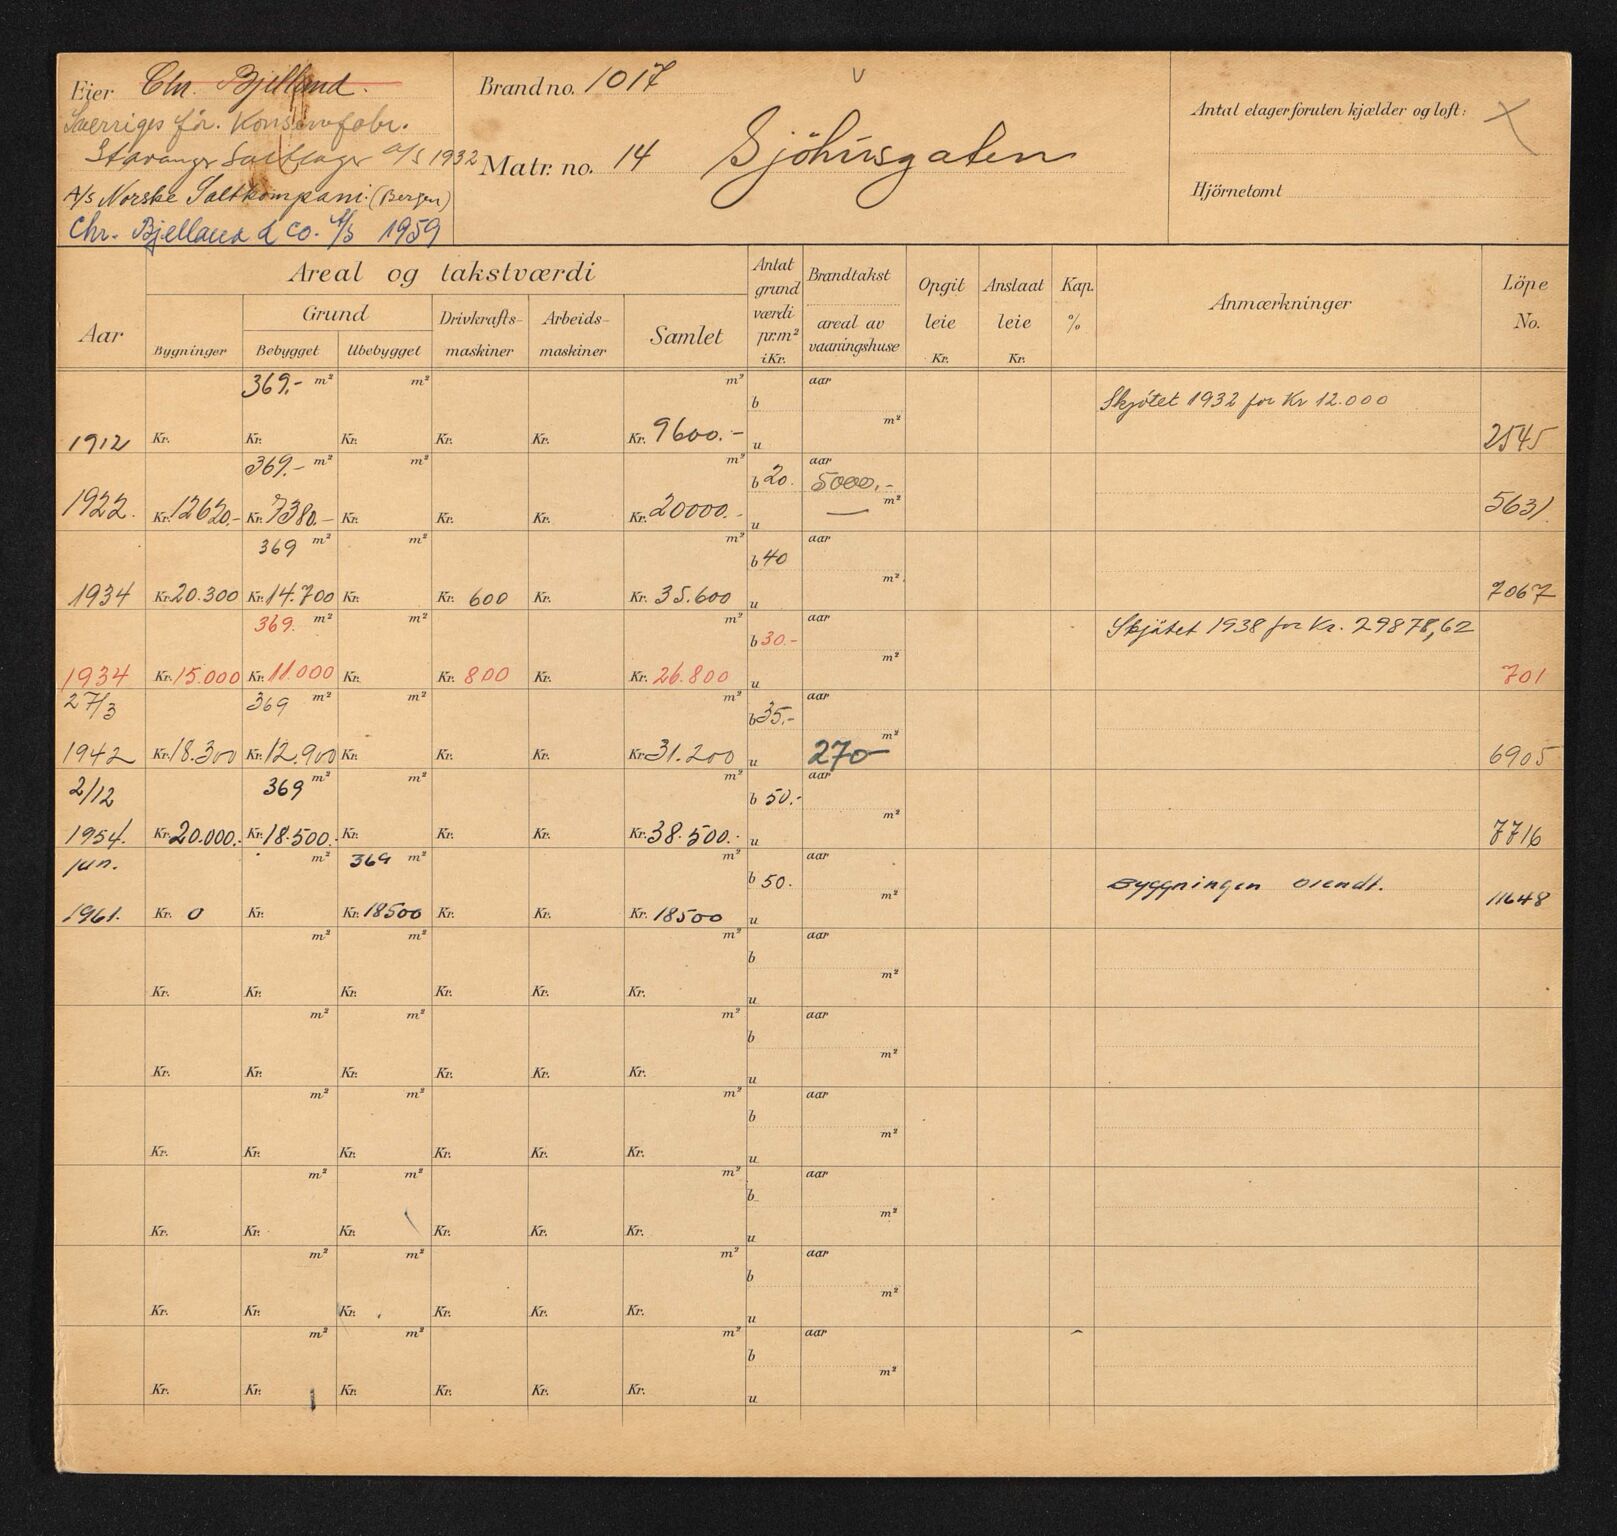 Eier Chr. Bjelland.
Sverriges för. Konservfabr.
Stavanger Saltlager A/S 1932
A/S Norske Saltkompani. (Bergen)
Chr. Bjelland & Co. A/S 1959
Brand no. 1017
Matr. no. 14 Sjöhusgaten
Antal etager foruten kjælder og loft:
Hjörnetomt
Aar
Areal og takstværdi
Bygninger
Grund
Bebygget Ubebygget
Drivkrafts-maskiner
Arbeids-maskiner
Samlet
Antat grund værdi pr. m² i Kr.
Brandtakst
areal av vaaningshuse
Opgit leie Kr.
Anslaat leie Kr.
Kap. %
Anmærkninger
Löpe No.
369.- m² m² m² aar
b Skjötet 1932 for Kr 12.000
m²
1912 Kr. Kr. Kr. Kr. Kr. Kr. 9600.- u 2545
369.- m² m² m² aar
b 20. 5000.-
m²
1922. Kr. 12620.- Kr. 7380.- Kr. Kr. Kr. Kr. 20000.- u 5631
369 m² m² m² aar
b 40
m²
1934 Kr. 20.300 Kr. 14.700 Kr. Kr. 600 Kr. Kr. 35.600 u 7067
369. m² m² m² aar
b 30.- Skjötet 1938 for Kr. 29878,62
m²
1934 Kr. 15.000 Kr. 11.000 Kr. Kr. 800 Kr. Kr. 26.800 u 701
27/3 369 m² m² m² aar
b 35.-
m²
1942 Kr. 18.300 Kr. 12.900 Kr. Kr. Kr. Kr. 31.200 u 270 6905
2/12 369 m² m² m² aar
b 50.-
m²
1954. Kr. 20.000.- Kr. 18.500.- Kr. Kr. Kr. Kr. 38.500.- u 7716
jun. m² 369 m² m² aar
b 50. Byggningen brendt.
m²
1961. Kr. 0 Kr. Kr. 18500 Kr. Kr. Kr. 18500 u 11648
m² m² m² aar
b
m²
Kr. Kr. Kr. Kr. Kr. Kr. u
m² m² m² aar
b
m²
Kr. Kr. Kr. Kr. Kr. Kr. u
m² m² m² aar
b
m²
Kr. Kr. Kr. Kr. Kr. Kr. u
m² m² m² aar
b
m²
Kr. Kr. Kr. Kr. Kr. Kr. u
m² m² m² aar
b
m²
Kr. Kr. Kr. Kr. Kr. Kr. u
m² m² m² aar
b
m²
Kr. Kr. Kr. Kr. Kr. Kr. u